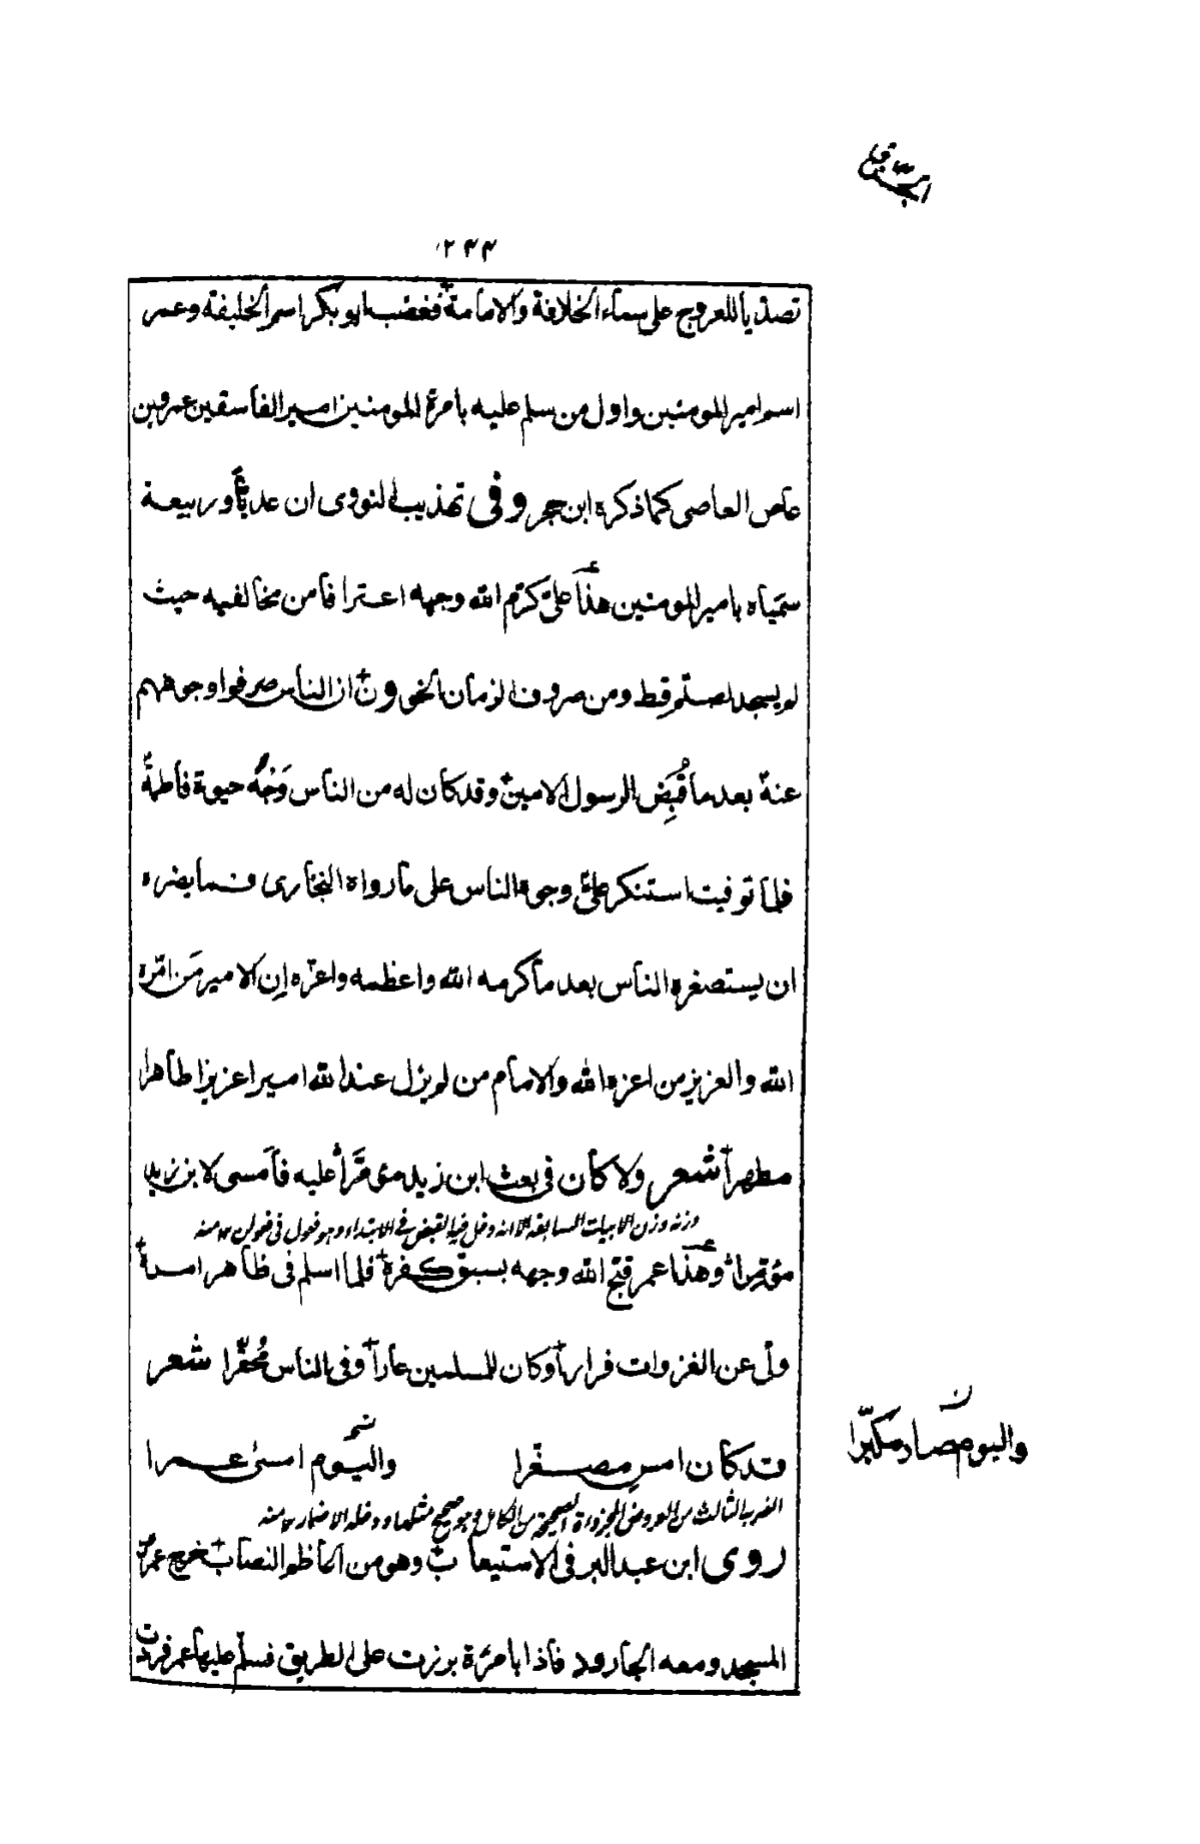 ۲۴۴
تصدّيا للعروج على سماء الخلافة والامامة فغصب ابو بكر اسم الخليفة وعمر
اسم امير المومنين واول من سلم عليه بامرة المومنين امير الفاسقين عمرو بن
عاص العاصى كما ذكره ابن حجر وفى تهذيب النووى ان عديّا وربيعة
سمّياه بامير المومنين هذا علىّ كرّم الله وجهه اعترافا من مخالفيه حيث
لم يسجد لصنم قط ومن صروف الزمان الخوون ان الناس صرفوا وجوههم
عنه بعد ما قُبِض الرسول الامين وقد كان له من الناس وَجْهٌ حيوة فاطمة
فلما توفيت استنكر علىّ وجوه الناس على ما رواه البخارى فما يضره
ان يستصغره الناس بعد ما كرمه الله واعظمه واعزّه اِن الامير مَن امّره
الله والعزيز من اعزه الله والامام من لم يزل عند الله اميرا عزيزا طاهرا
مطهرا شعر ولا كان فى بعث ابن زيد مؤمَّرا عليه فامسى لابن زيد
وزنه وزن الابيات السابقة الا انه دخل فيه القبض فى الابتداء وهو فعول فى فعولن ١٢ منه
مؤتمرا وهذا عمر قبّح الله وجهه بسبق كفره فلما اسلم فى ظاهر امره
ولّى عن الغزوات فرارا وكان للمسلمين عارا وفى الناس مُحقّرا شعر
قد كان امسِ مصغّرا واليوم امسىٰ عمرا
ن
واليوم صار مكبّرا
الضرب الثالث من العروض المجزوءة الصحيحة من الكامل وهو صحيح مثلها ودخله الاضمار ١٢ منه
روى ابن عبد البر فى الاستيعاب وهو من اعاظم النصاب خرج عمر من
المسجد ومعه الجارود فاذا بامرءة برزت على الطريق فسلّم عليها عمر فردت